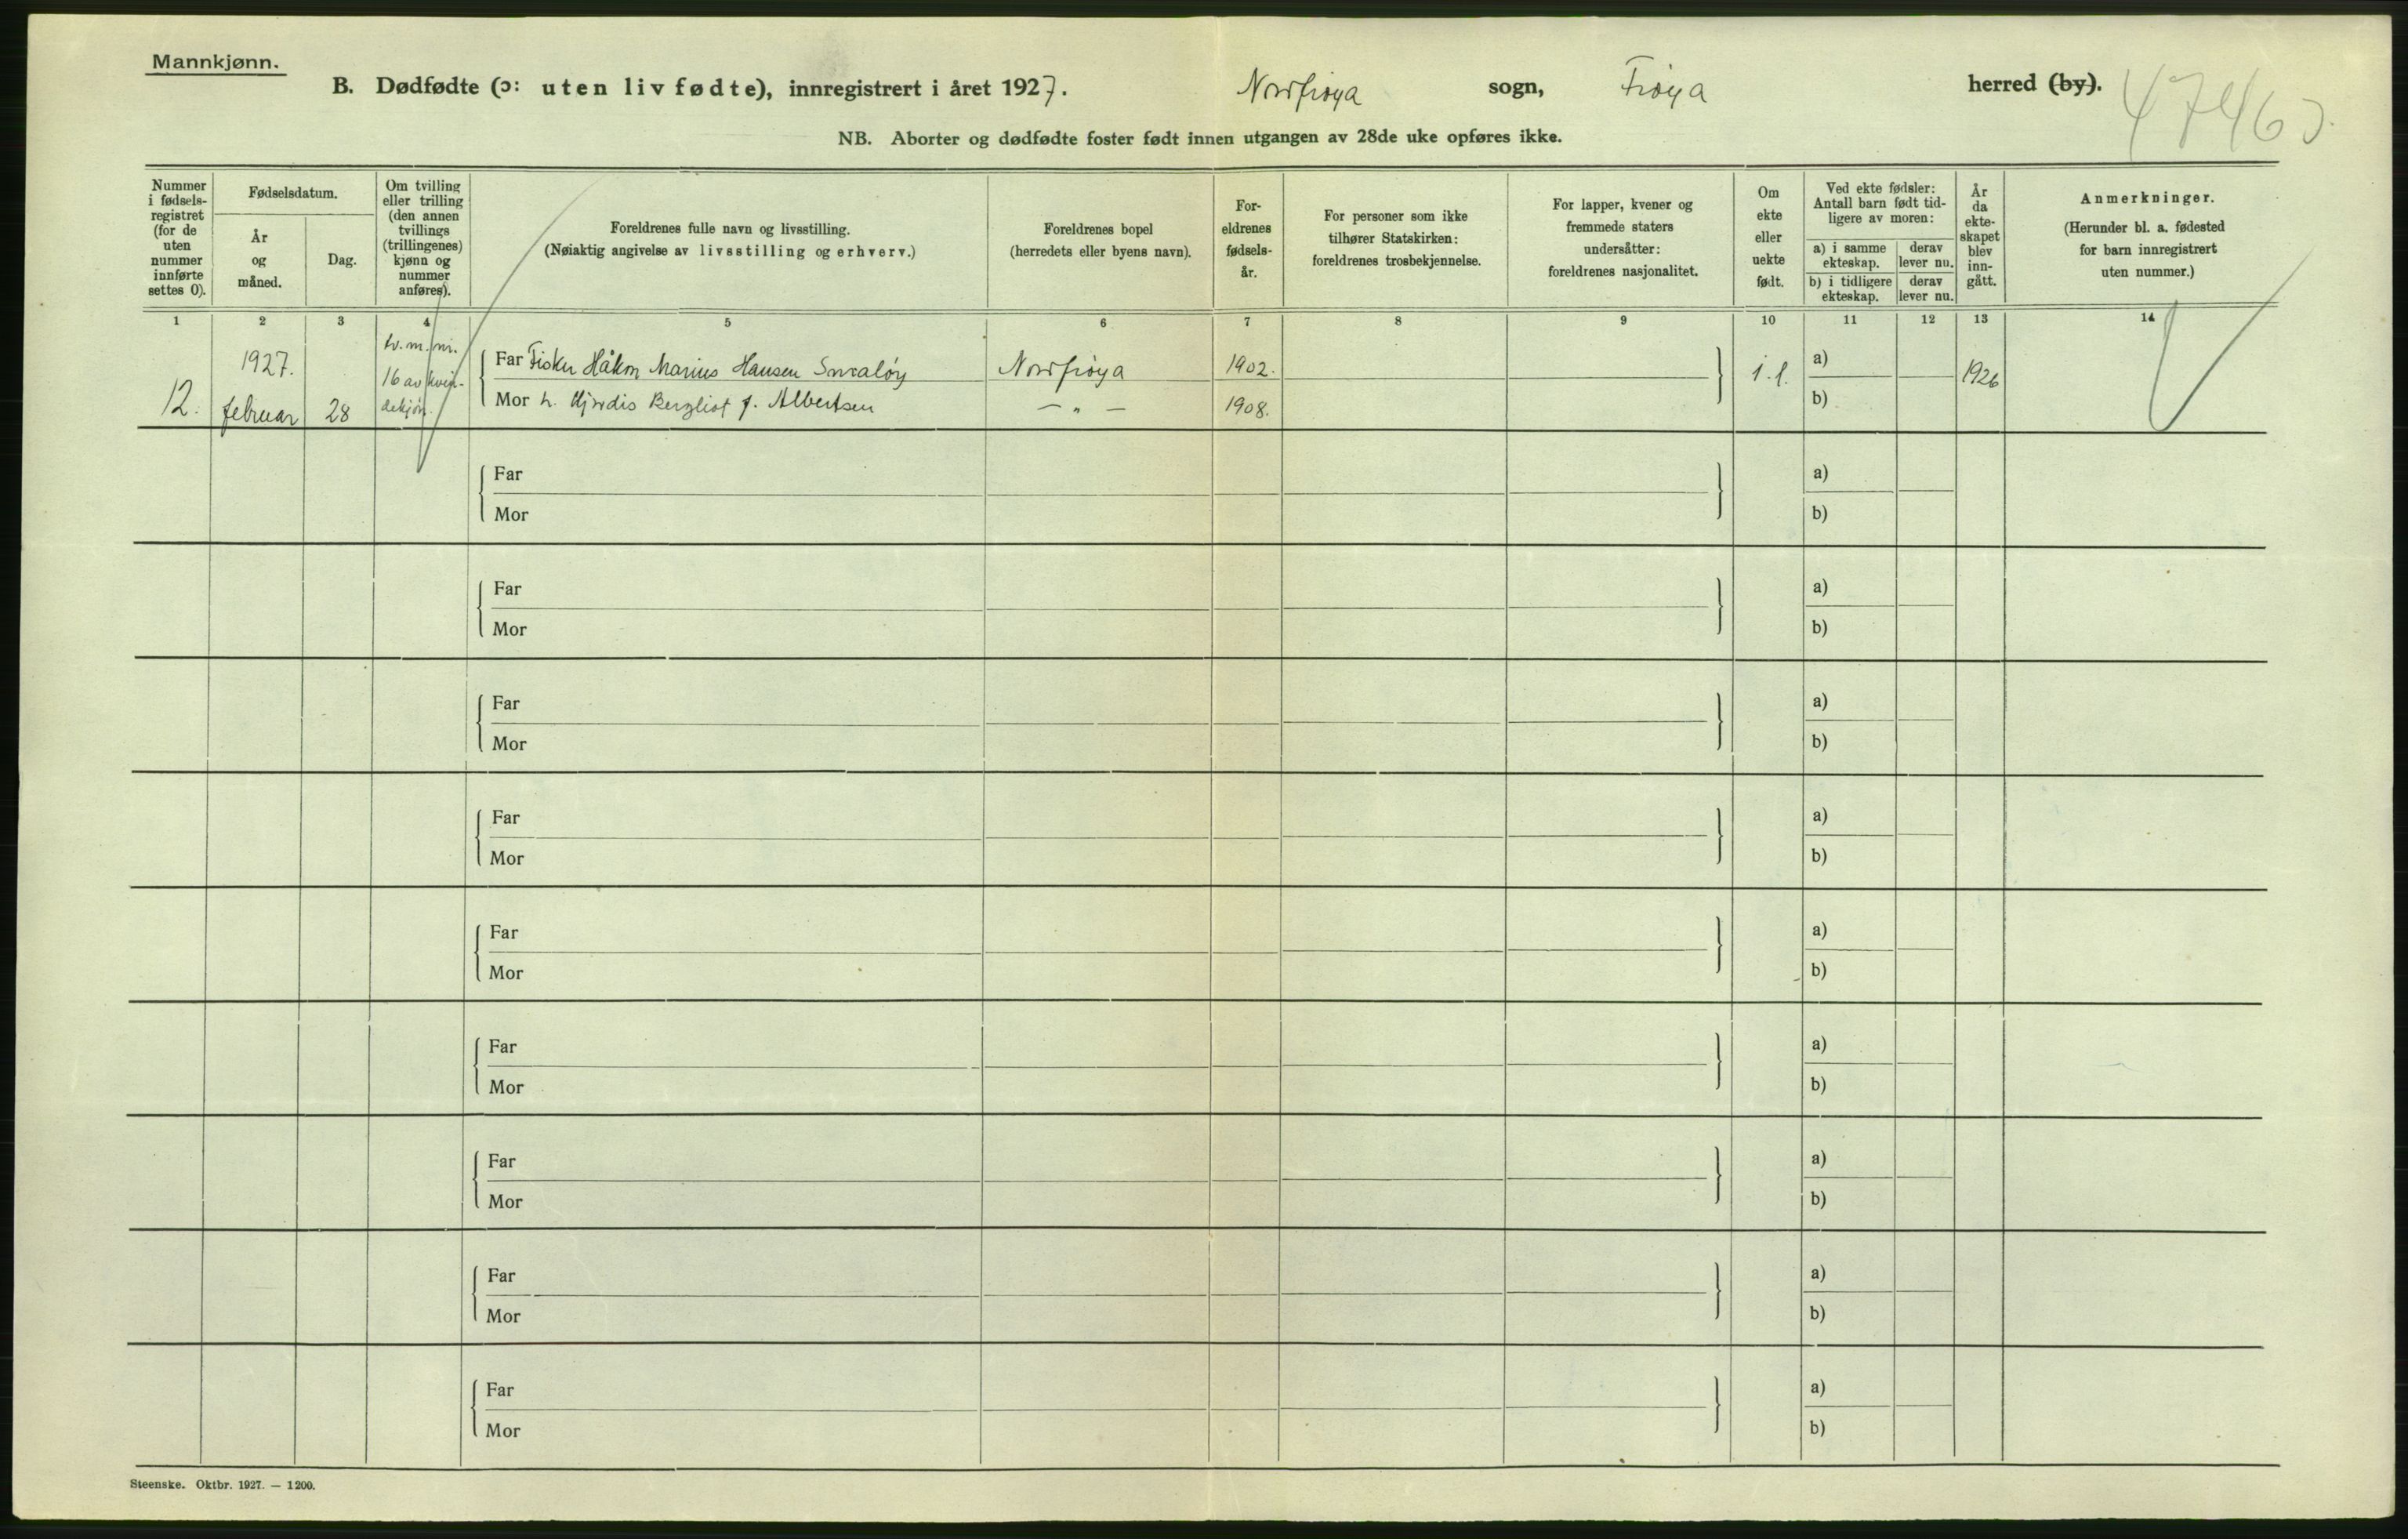 Mannkjønn.
B. Dødfødte (ɔ: uten liv fødte), innregistrert i året 1927. Nordfrøya sogn, Frøya herred (by).
NB. Aborter og dødfødte foster født innen utgangen av 28de uke opføres ikke.
Nummer i fødsels-registret (for de uten nummer innførte settes 0).
Fødselsdatum.
År og måned.
Dag.
Om tvilling eller trilling (den annen tvillings (trillingenes) kjønn og nummer anføres).
Foreldrenes fulle navn og livsstilling.
(Nøiaktig angivelse av livsstilling og erhverv.)
Foreldrenes bopel
(herredets eller byens navn).
For-eldrenes fødsels-år.
For personer som ikke tilhører Statskirken: foreldrenes trosbekjennelse.
For lapper, kvener og fremmede staters undersåtter: foreldrenes nasjonalitet.
Om ekte eller uekte født.
Ved ekte fødsler: Antall barn født tid-ligere av moren:
a) i samme ekteskap.
derav lever nu.
b) i tidligere ekteskap.
derav lever nu.
År da ekte-skapet blev inn-gått.
Anmerkninger.
(Herunder bl. a. fødested for barn innregistrert uten nummer.)
1 2 3 4 5 6 7 8 9 10 11 12 13 14
12. 1927. februar 28
tv. m. nr.
16 av kvin-
dekjøn.
Far Fisker Håkon Marius Hansen Nordfrøya 1902. i.l. a) 1926
Mor h. Hjørdis Bergliot f. Albertsen — " — 1908. b)
Far a)
Mor b)
Far a)
Mor b)
Far a)
Mor b)
Far a)
Mor b)
Far a)
Mor b)
Far a)
Mor b)
Far a)
Mor b)
Far a)
Mor b)
Far a)
Mor b)
Steenske. Oktbr. 1927. — 1200.